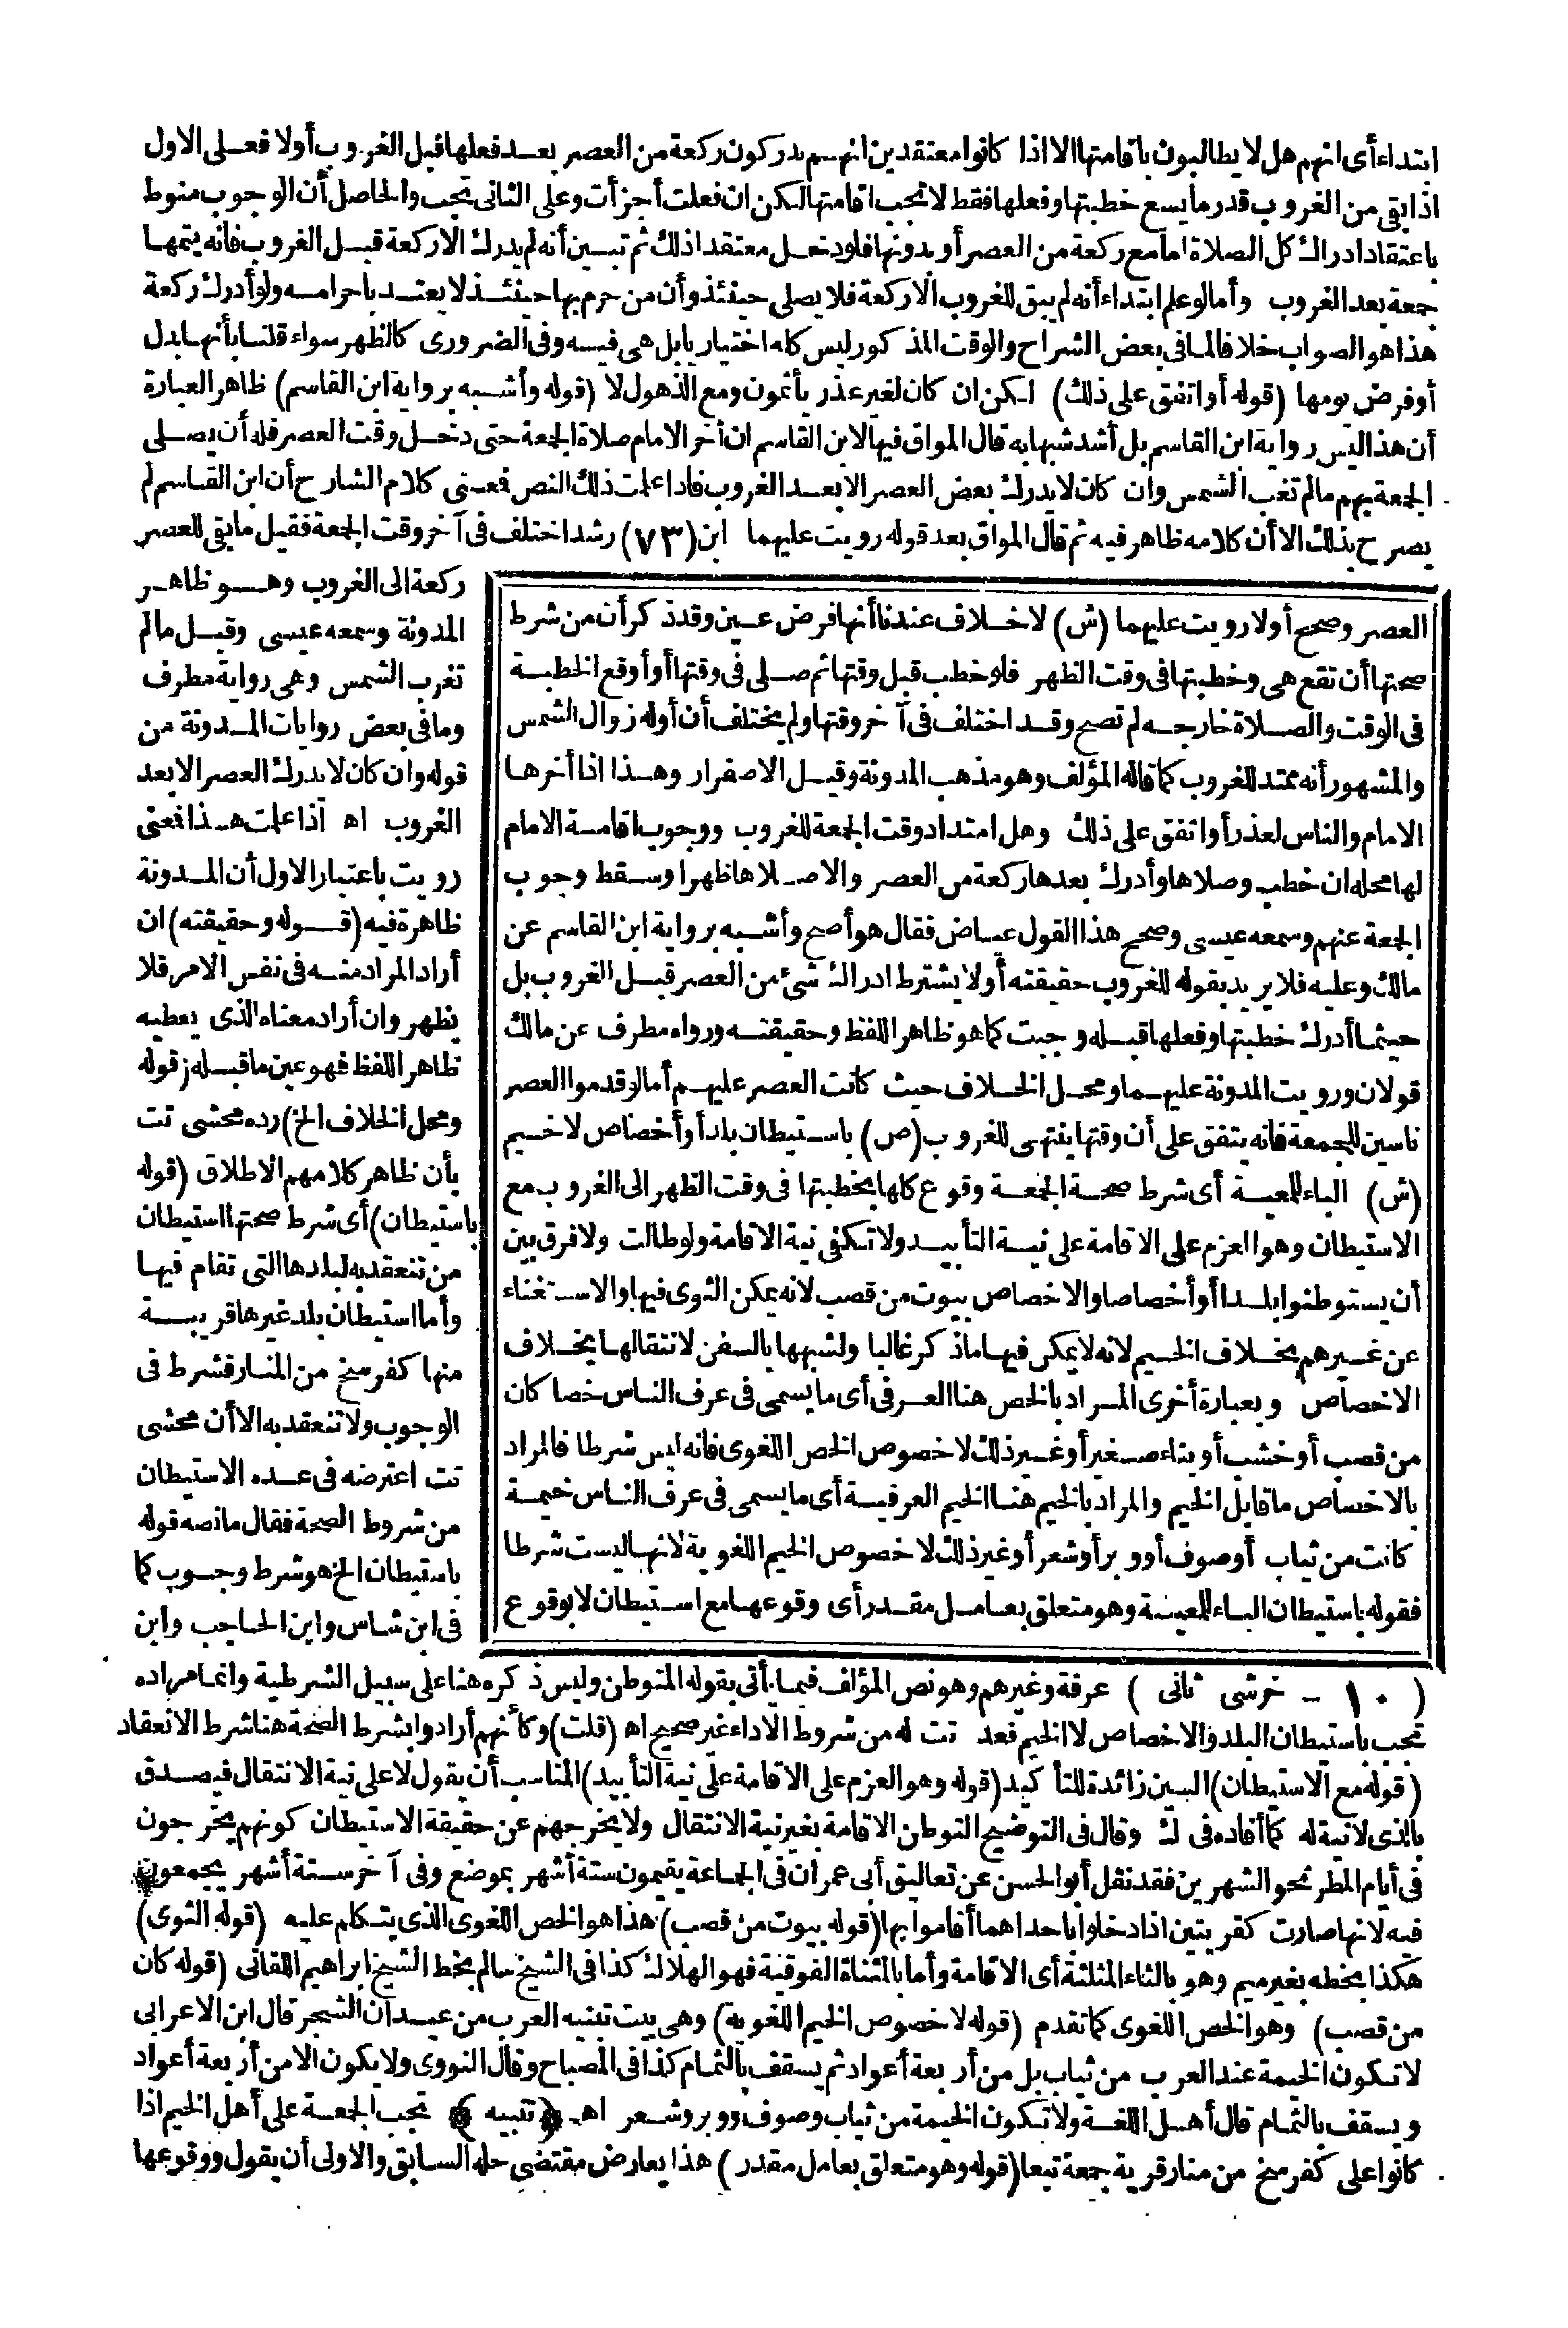 ابتداء أى انهم هل لا يطالبون باقامتها الا اذا كانوا معتقدين انهم يدركون ركعة من العصر بعد فعلها قبل الغروب أولا فعلى الاول
اذا بقى من الغروب قدر ما يسع خطبتها وفعلها فقط لا تجب اقامتها لكن ان فعلت أجزأت وعلى الثانى تجب والحاصل أن الوجوب منوط
باعتقاد ادراك كل الصلاة اما مع ركعة من العصر أو بدونها فلو دخل معتقدا ذلك ثم تبين أنه لم يدرك الا ركعة قبل الغروب فانه يتمها
جمعة بعد الغروب وأما لو علم ابتداء أنه لم يبق للغروب الا ركعة فلا يصلى حينئذ وأن من حرم بها حينئذ لا يعتد باحرامه ولو أدرك ركعة
هذا هو الصواب خلافا لما فى بعض الشراح والوقت المذكور ليس كله اختياريا بل هى فيه وفى الضرورى كالظهر سواء قلنا بأنها بدل
أو فرض يومها (قوله أو اتفق على ذلك) لكن ان كان لغير عذر يأثمون ومع الذهول لا (قوله وأشبه برواية ابن القاسم) ظاهر العبارة
أن هذا ليس رواية ابن القاسم بل أشد شبها به قال المواق فيها لابن القاسم ان أخر الامام صلاة الجمعة حتى دخل وقت العصر فله أن يصلى
الجمعة بهم ما لم تغب الشمس وان كان لا يدرك بعض العصر الا بعد الغروب فاذا علمت ذلك النص فمعنى كلام الشارح أن ابن القاسم لم
يصرح بذلك الا أن كلامه ظاهر فيه ثم قال المواق بعد قوله رويت عليهما ابن (٧٣) رشد اختلف فى آخر وقت الجمعة فقيل ما بقى للعصر
ركعة الى الغروب وهو ظاهر
المدونة وسمعه عيسى وقيل ما لم
تغرب الشمس وهى رواية مطرف
وما فى بعض روايات المدونة من
قوله وان كان لا يدرك العصر الا بعد
الغروب اه اذا علمت هذا فمعنى
رويت باعتبار الاول أن المدونة
ظاهرة فيه (قوله وحقيقته) ان
أراد المراد منه فى نفس الامر فلا
يظهر وان أراد معناه الذى يعطيه
ظاهر اللفظ فهو عين ما قبله (قوله
ومحل الخلاف الخ) رده محشى تت
بأن ظاهر كلامهم الاطلاق (قوله
باستيطان) أى شرط صحتها استيطان
من تنعقد به لبلدها التى تقام فيها
وأما استيطان بلد غيرها قريبة
منها كفرسخ من المنار فشرط فى
الوجوب ولا تنعقد به الا أن محشى
تت اعترضه فى عده الاستيطان
من شروط الصحة فقال ما نصه قوله
باستيطان الخ هو شرط وجوب كما
فى ابن شاس وابن الحاجب وابن
العصر وصحح أولا رويت عليهما (ش) لا خلاف عندنا أنها فرض عين وقد ذكر أن من شرط
صحتها أن تقع هى وخطبتها فى وقت الظهر فلو خطب قبل وقتها ثم صلى فى وقتها أو أوقع الخطبة
فى الوقت والصلاة خارجه لم تصح وقد اختلف فى آخر وقتها ولم يختلف أن أوله زوال الشمس
والمشهور أنه ممتد للغروب كما قاله المؤلف وهو مذهب المدونة وقيل الاصفرار وهذا اذا أخرها
الامام والناس لعذر أو اتفق على ذلك وهل امتداد وقت الجمعة للغروب ووجوب اقامة الامام
لها محله ان خطب وصلاها وأدرك بعدها ركعة من العصر والا صلاها ظهرا وسقط وجوب
الجمعة عنهم وسمعه عيسى وصحح هذا القول عياض فقال هو أصح وأشبه برواية ابن القاسم عن
مالك وعليه فلا يريد بقوله للغروب حقيقته أو لا يشترط ادراك شئ من العصر قبل الغروب بل
حيثما أدرك خطبتها وفعلها قبله وجبت كما هو ظاهر اللفظ وحقيقته ورواه مطرف عن مالك
قولان ورويت المدونة عليهما ومحل الخلاف حيث كانت العصر عليهم أما لو قدموا العصر
ناسين للجمعة فانه يتفق على أن وقتها ينتهى للغروب (ص) باستيطان بلد أو أخصاص لا خيم
(ش) الباء للمعية أى شرط صحة الجمعة وقوع كلها بخطبتها فى وقت الظهر الى الغروب مع
الاستيطان وهو العزم على الاقامة على نية التأبيد ولا تكفى نية الاقامة ولو طالت ولا فرق بين
أن يستوطنوا بلدا أو أخصاصا والاخصاص بيوت من قصب لانه يمكن الثوى فيها والاستغناء
عن غيرهم بخلاف الخيم لانه لا يمكن فيها ما ذكر غالبا ولشبهها بالسفن لانتقالها بخلاف
الاخصاص وبعبارة أخرى المراد بالخص هنا العرفى أى ما يسمى فى عرف الناس خصا كان
من قصب أو خشب أو بناء صغير أو غير ذلك لا خصوص الخص اللغوى فانه ليس شرطا فالمراد
بالاخصاص ما قابل الخيم والمراد بالخيم هنا الخيم العرفية أى ما يسمى فى عرف الناس خيمة
كانت من ثياب أو صوف أو وبر أو شعر أو غير ذلك لا خصوص الخيم اللغوية لانها ليست شرطا
فقوله باستيطان الباء للمعية وهو متعلق بعامل مقدر أى وقوعها مع استيطان لا بوقوع
(١٠ - خرشى ثانى) عرفة وغيرهم وهو نص المؤلف فيما يأتى بقوله المتوطن وليس ذكره هنا على سبيل الشرطية وانما مراده
تجب باستيطان البلد والاخصاص لا الخيم فعد تت له من شروط الاداء غير صحيح اه (قلت) وكأنهم أرادوا بشرط الصحة هنا شرط الانعقاد
(قوله مع الاستيطان) السين زائدة للتأكيد (قوله وهو العزم على الاقامة على نية التأبيد) المناسب أن يقول لا على نية الانتقال فيصدق
بالذى لا نية له كما أفاده فى ك وقال فى التوضيح التوطن الاقامة بغير نية الانتقال ولا يخرجهم عن حقيقة الاستيطان كونهم يخرجون
فى أيام المطر نحو الشهرين فقد نقل أبو الحسن عن تعاليق أبى عمران فى الجماعة يقيمون ستة أشهر بموضع وفى آخر ستة أشهر يجمعون
فيه لانها صارت كقريتين اذا دخلوا باحداهما أقاموا بها (قوله بيوت من قصب) هذا هو الخص اللغوى الذى يتكلم عليه (قوله الثوى)
هكذا بخطه بغير ميم وهو بالثاء المثلثة أى الاقامة وأما بالمثناة الفوقية فهو الهلاك كذا فى الشيخ سالم بخط الشيخ ابراهيم اللقانى (قوله كان
من قصب) وهو الخص اللغوى كما تقدم (قوله لا خصوص الخيم اللغوية) وهى بيت تبنيه العرب من عيدان الشجر قال ابن الاعرابى
لا تكون الخيمة عند العرب من ثياب بل من أربعة أعواد ثم يسقف بالثمام كذا فى المصباح وقال النووى ولا يكون الا من أربعة أعواد
ويسقف بالثمام قال أهل اللغة ولا تكون الخيمة من ثياب وصوف ووبر وشعر اهـ ﴿تنبيه﴾ تجب الجمعة على أهل الخيم اذا
كانوا على كفرسخ من منار قرية جمعة تبعا (قوله وهو متعلق بعامل مقدر) هذا يعارض مقتضى حله السابق والاولى أن يقول ووقوعها